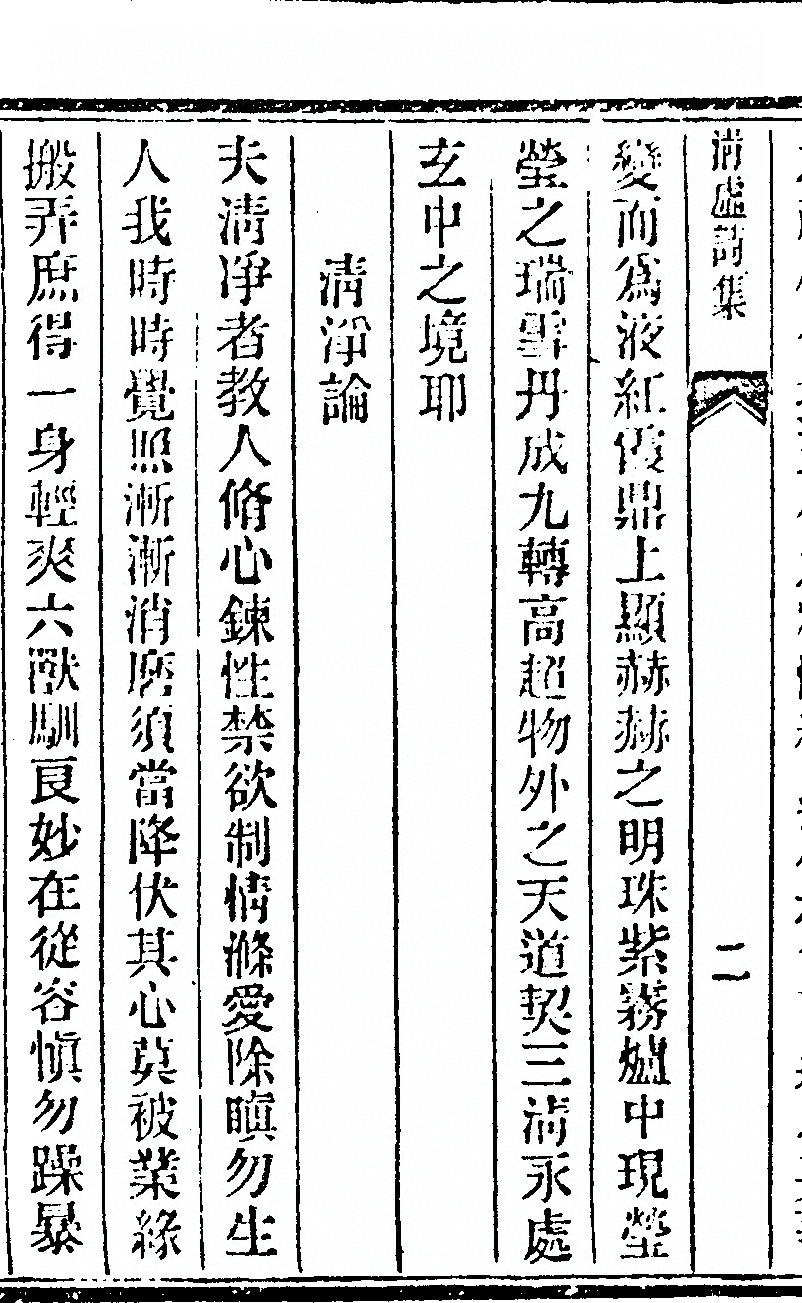 清虛詩集
二
變而爲液紅霞鼎上顯赫赫之明珠紫霧爐中現瑩
瑩之瑞雪丹成九轉高超物外之天道契三淸永處
玄中之境耶
淸淨論
夫淸淨者教人脩心鍊性禁欲制情滌愛除瞋勿生
人我時時覺照漸漸消磨須當降伏其心莫被業緣
搬弄庶得一身輕爽六獸馴良妙在從容愼勿躁暴